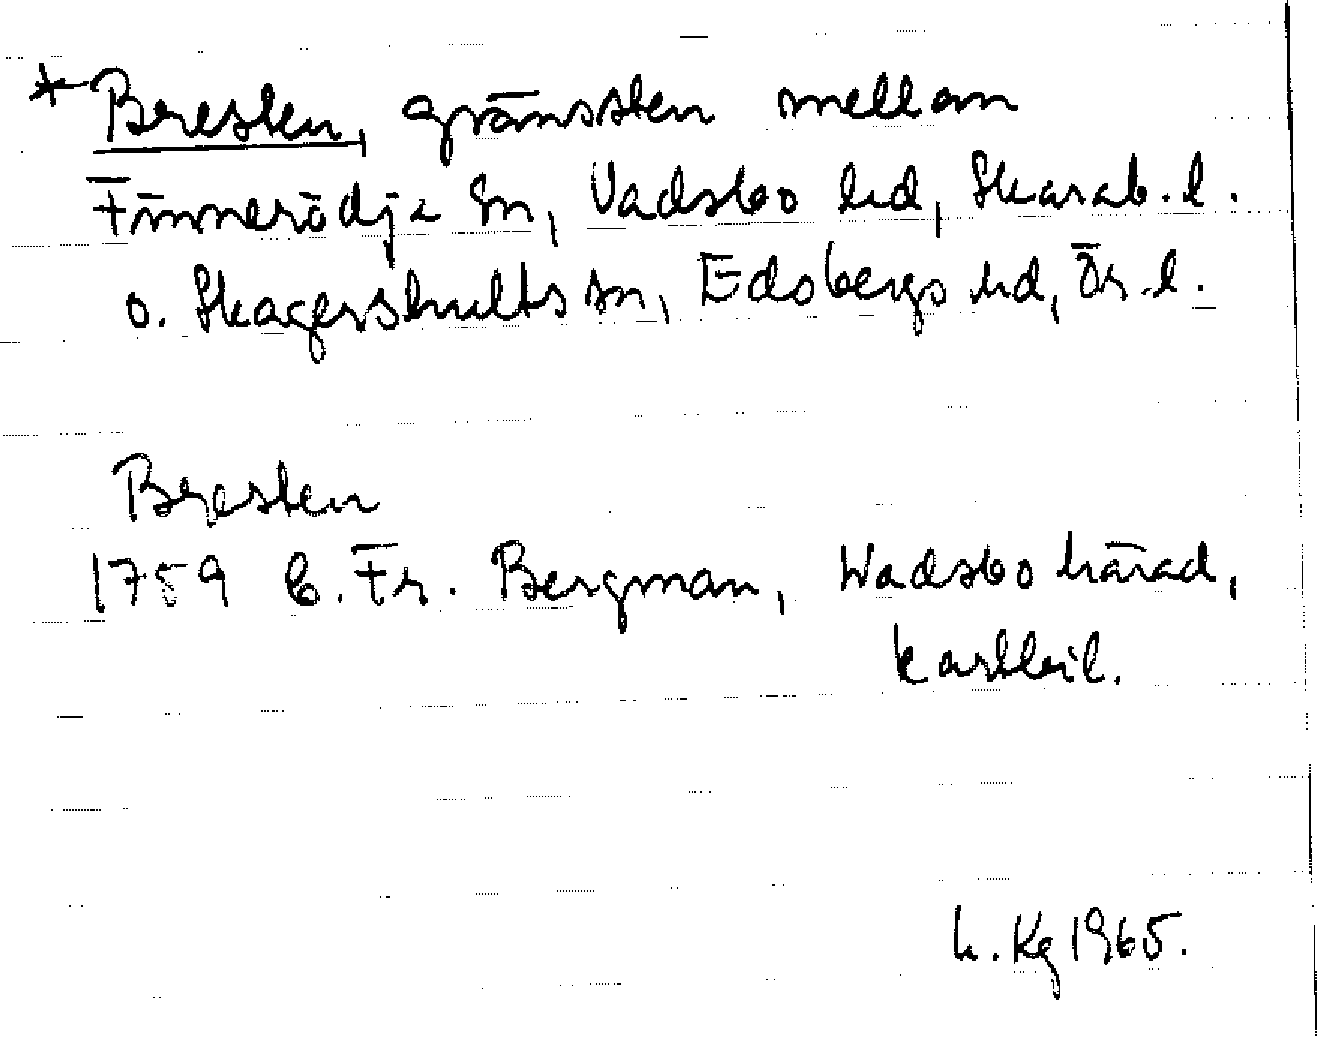 * Bresten, gränssten mellan
Finnerödja Sn, Vadsbo hd, Skarab. l.
o. Skagershults sn, Edsbergs hd, Ör. l.
Bresten
1759 C. Fr. Bergman, Wadsbo härad,
kartbil.
h. Kg 1965.